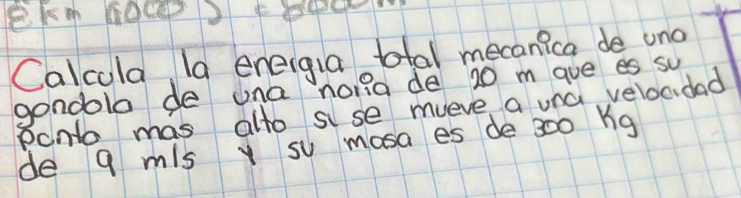 8 km 1000
Calcula la energia total mecanica de una
gondola de una noria de 20 m que es su
punto mas alto si se mueve a una velocidad
de 9 m/s y su masa es de 300 Kg